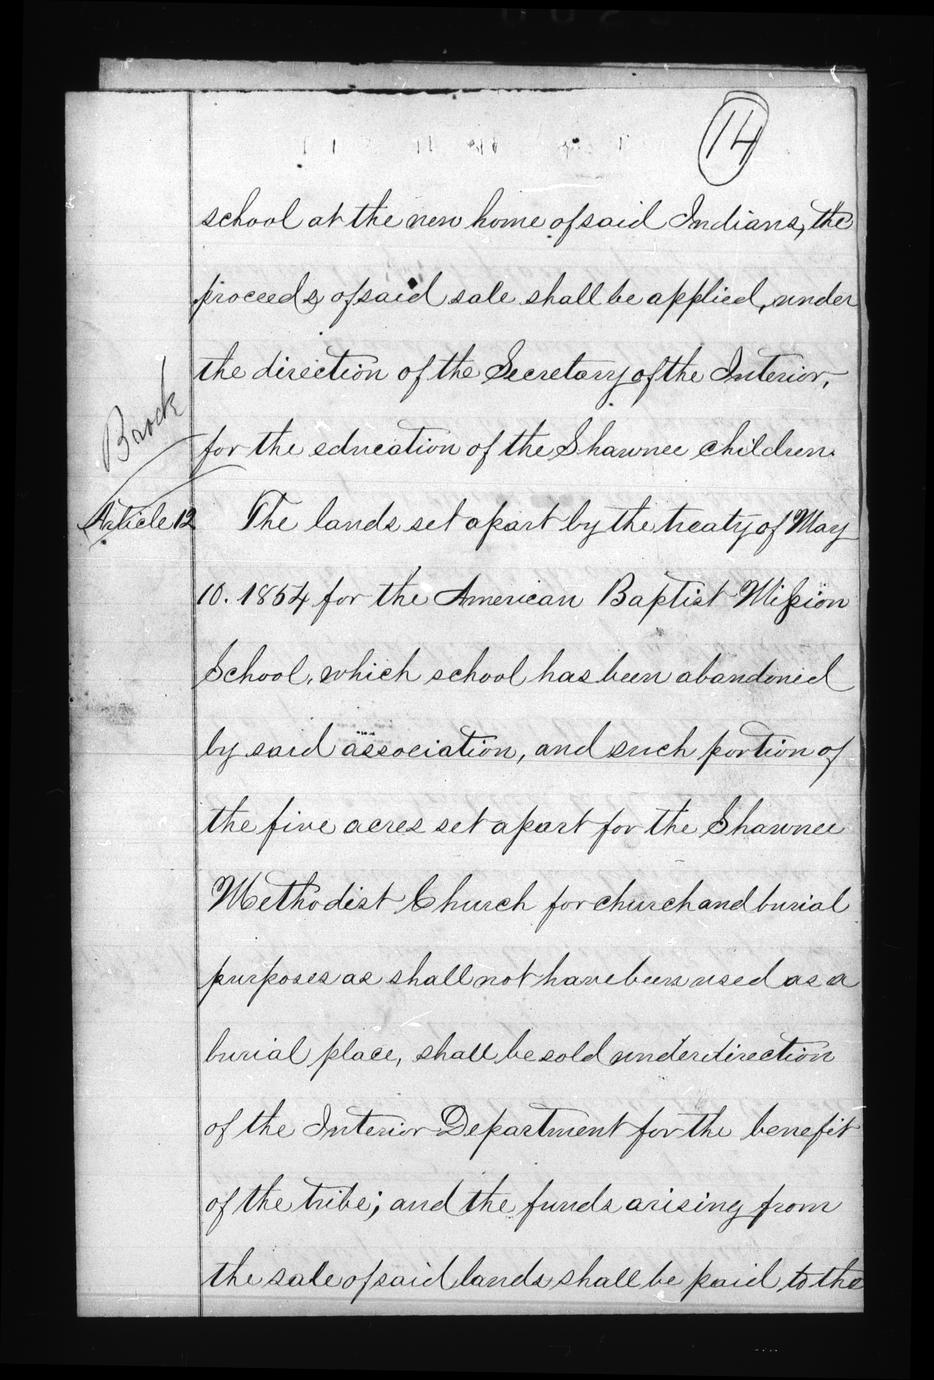 14
school at the new home of said Indians, the
proceeds of said sale shall be applied, under
the direction of the Secretary of the Interior,
Brock
for the education of the Shawnee children.
Article 12 The lands set apart by the treaty of May
10. 1854 for the American Baptist Mission
School, which school has been abandoned
by said association, and such portion of
the five acres set apart for the Shawnee
Methodist Church for church and burial
purposes as shall not have been used as a
burial place, shall be sold under direction
of the Interior Department for the benefit
of the tribe; and the funds arising from
the sale of said lands shall be paid to the